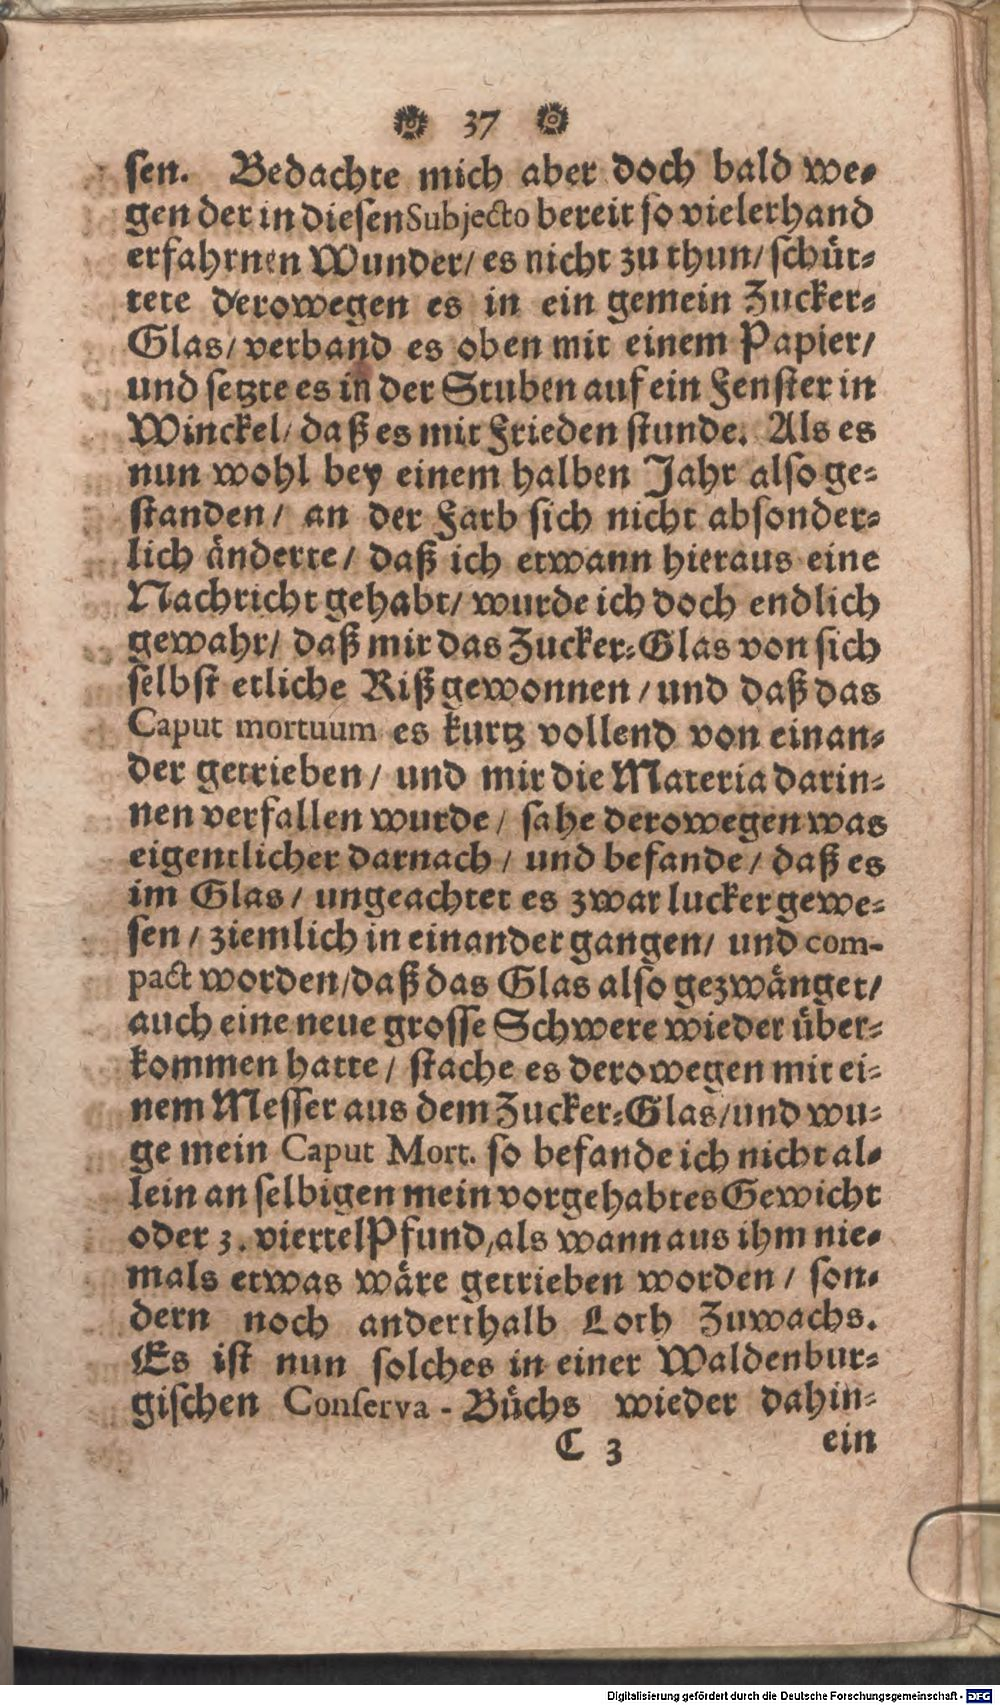 37
sen. Bedachte mich aber doch bald we-
gen der in diesen Subjecto bereit so vielerhand
erfahrnen Wunder/ es nicht zu thun/ schüt-
tete derowegen es in ein gemein Zucker-
Glas/ verband es oben mit einem Papier/
und setzte es in der Stuben auf ein Fenster in
Winckel/ daß es mit Frieden stunde. Als es
nun wohl bey einem halben Jahr also ge-
standen/ an der Farb sich nicht absonder-
lich änderte/ daß ich etwann hieraus eine
Nachricht gehabt/ wurde ich doch endlich
gewahr/ daß mir das Zucker-Glas von sich
selbst etliche Riß gewonnen/ und daß das
Caput mortuum es kurtz vollend von einan-
der getrieben/ und mir die Materia darin-
nen verfallen wurde/ sahe derowegen was
eigentlicher darnach/ und befande/ daß es
im Glas/ ungeachtet es zwar lucker gewe-
sen/ ziemlich in einander gangen/ und com-
pact worden/ daß das Glas also gezwänget/
auch eine neue grosse Schwere wieder über-
kommen hatte/ stache es derowegen mit ei-
nem Messer aus dem Zucker-Glas/ und wu-
ge mein Caput Mort. so befande ich nicht al-
lein an selbigen mein vorgehabtes Gewicht
oder 3. viertel Pfund, als wann aus ihm nie-
mals etwas wäre getrieben worden/ son-
dern noch anderthalb Loth Zuwachs.
Es ist nun solches in einer Waldenbur-
gischen Conserva-Büchs wieder dahin-
C 3 ein
Digitalisierung gefördert durch die Deutsche Forschungsgemeinschaft - DFG